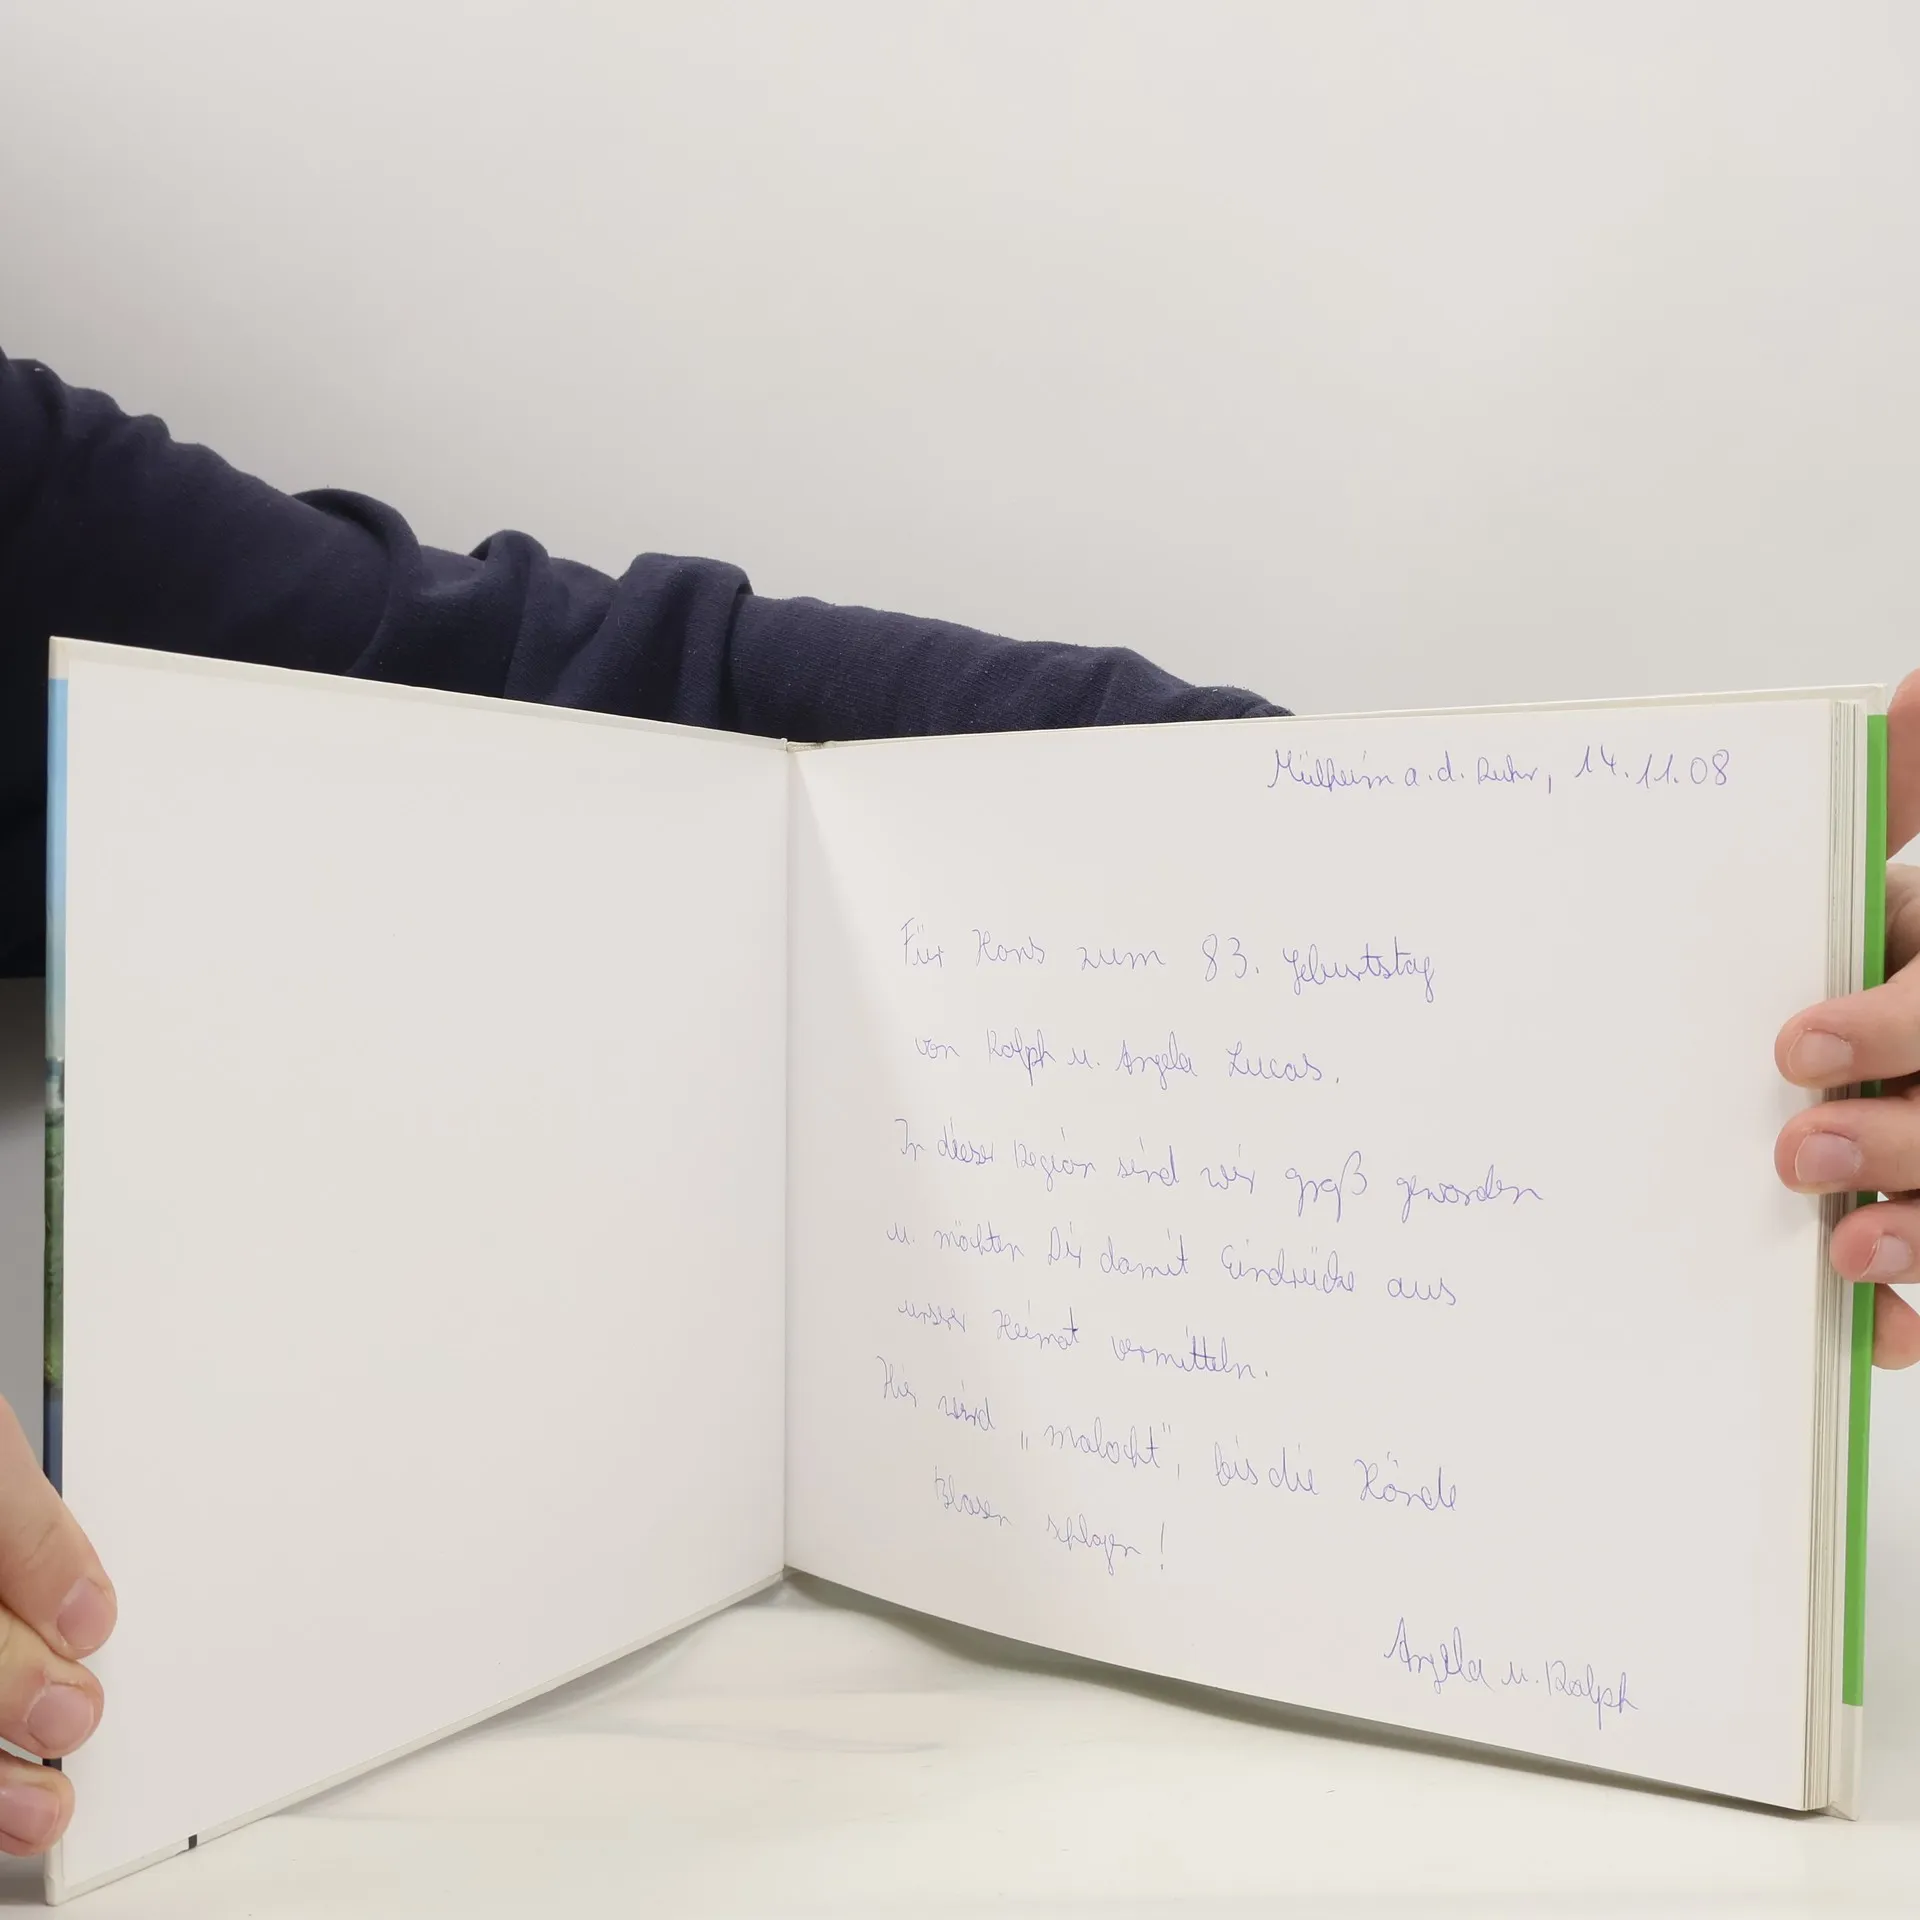 Mülheim a.d. Ruhr, 14.11.08
Für Hans zum 83. Geburtstag
von Ralph u. Angela Lucas.
In dieser Region sind wir groß geworden
u. möchten Dir damit Eindrücke aus
unserer Heimat vermitteln.
Hier wird „malocht", bis die Hände
Blasen schlagen!
Angela u. Ralph